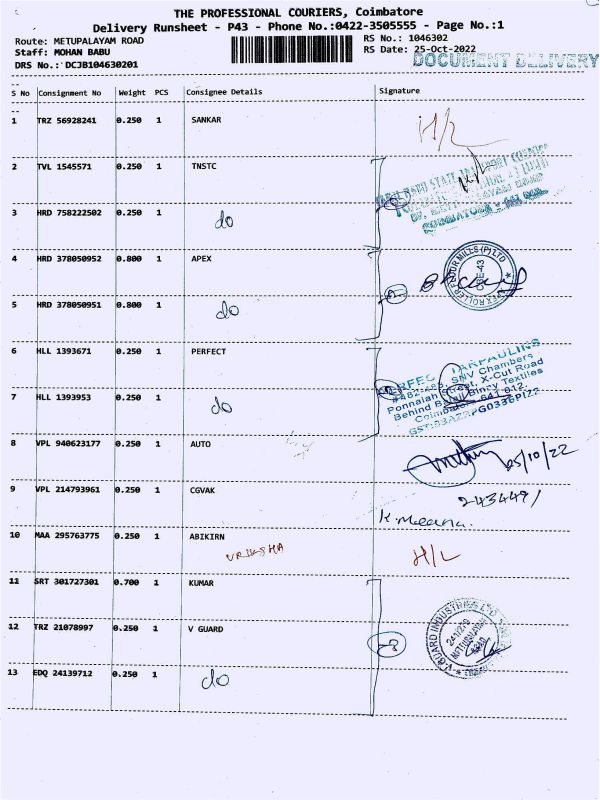 THE PROFESSIONAL COURIERS, Coimbatore
Delivery Runsheet - P43 - Phone No.:0422-3505555 - Page No.:1
Route: METUPALAYAM ROAD
RS No.: 1046302
Staff: MOHAN BABU
RS Date: 25-Oct-2022
DRS No.: DCJB104630201
DOCUMENT DELIVERY
S No Consignment No Weight PCS Consignee Details Signature
1 TRZ 56928241 0.250 1 SANKAR
H/L
2 TVL 1545571 0.250 1 TNSTC
3 HRD 758222502 0.250 1 do
4 HRD 378050952 0.800 1 APEX
APEX ROLLER FLOUR MILLS (P) LTD
CBE-43
5 HRD 378050951 0.800 1 do
6 HLL 1393671 0.250 1 PERFECT
PERFECT TARPAULINS
#482-485, SNV Chambers
Ponnaiah Street, X-Cut Road
7 HLL 1393953 0.250 1 do
Textiles
8 VPL 940623177 0.250 1 AUTO
25/10/22
9 VPL 214793961 0.250 1 CGVAK
K. Meena.
10 MAA 295763775 0.250 1 ABIKIRN
VRIKSHA
H/L
11 SRT 301727301 0.700 1 KUMAR
12 TRZ 21078997 0.250 1 V GUARD
V-GUARD INDUSTRIES
13 EDQ 24139712 0.250 1 do